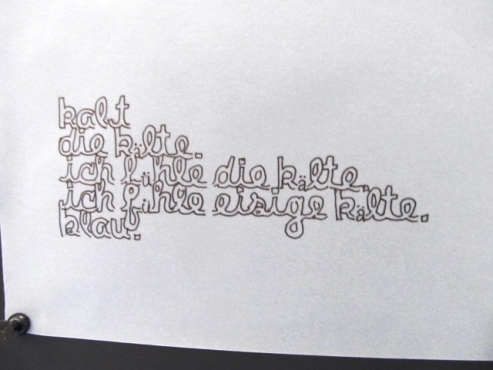 kalt
die kälte.
ich fühle die kälte.
ich fühle eisige kälte.
blau.